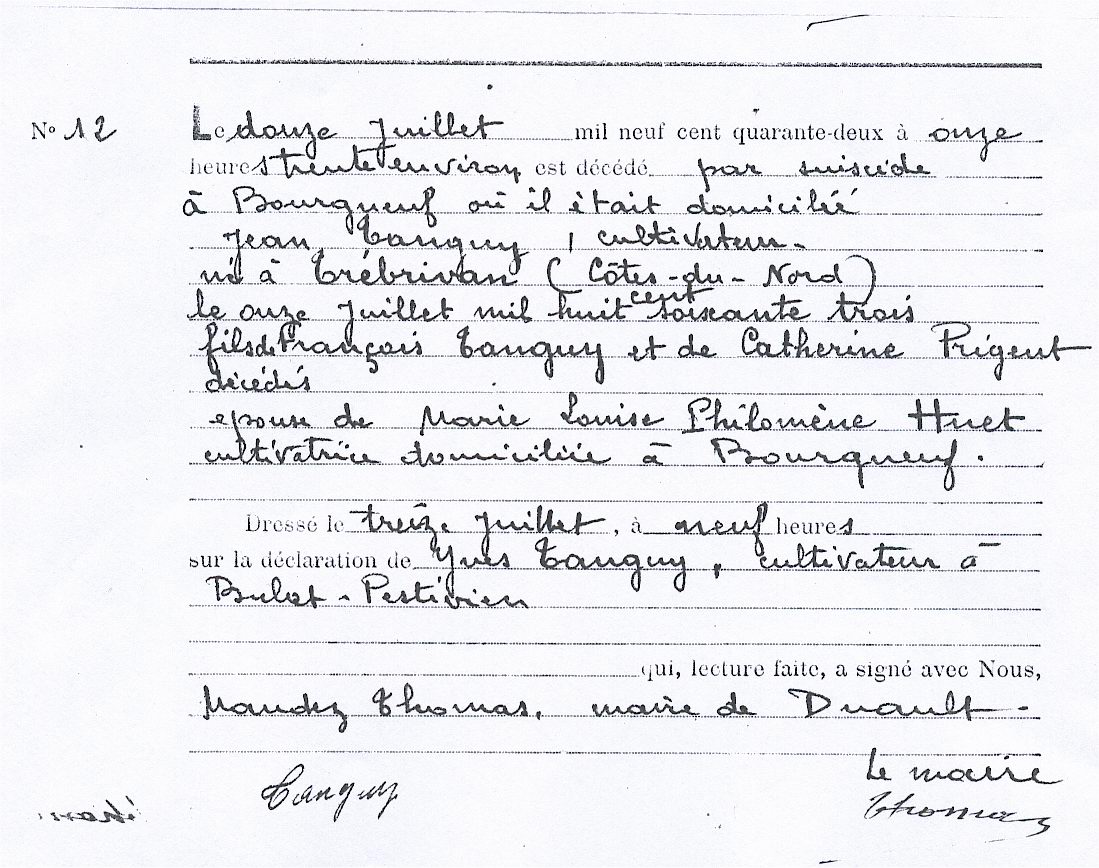 N° 12
Le douze Juillet mil neuf cent quarante-deux à onze
heures trente environ est décédé par suiscide
à Bourgneuf où il était domicilié
Jean Tanguy, cultivateur.
né à Trébrivan (Côtes-du-Nord)
le onze Juillet mil huit cent soixante trois
fils de François Tanguy et de Catherine Prigent
décédés
epoux de Marie Louise Philomène Huet
cultivatrice domiciliée à Bourgneuf.
Dressé le treize Juillet, à neuf heures
sur la déclaration de Yves Tanguy, cultivateur à
Bulat-Pestivien
qui, lecture faite, a signé avec Nous,
Maudez Thomas, maire de Duault.
Le maire
Tanguy
Thomas